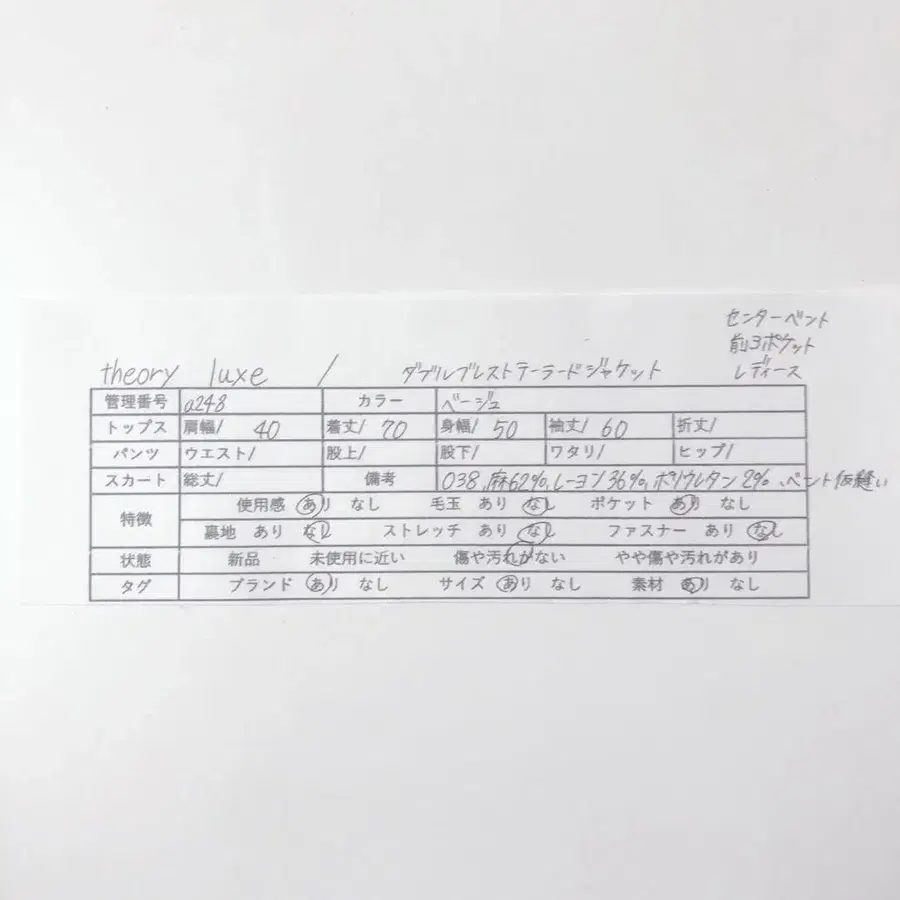 センターベント
前3ポケット
レディース
theory luxe / ダブルブレストテーラードジャケット
管理番号 a248 カラー ベージュ
トップス 肩幅/ 40 着丈/ 70 身幅/ 50 袖丈/ 60 折丈/
パンツ ウエスト/ 股上/ 股下/ ワタリ/ ヒップ/
スカート 総丈/ 備考 038、麻62%、レーヨン36%、ポリウレタン2%、ベント仮縫い
特徴 使用感 あり なし 毛玉 あり なし ポケット あり なし
裏地 あり なし ストレッチ あり なし ファスナー あり なし
状態 新品 未使用に近い 傷や汚れがない やや傷や汚れがあり
タグ ブランド あり なし サイズ あり なし 素材 あり なし